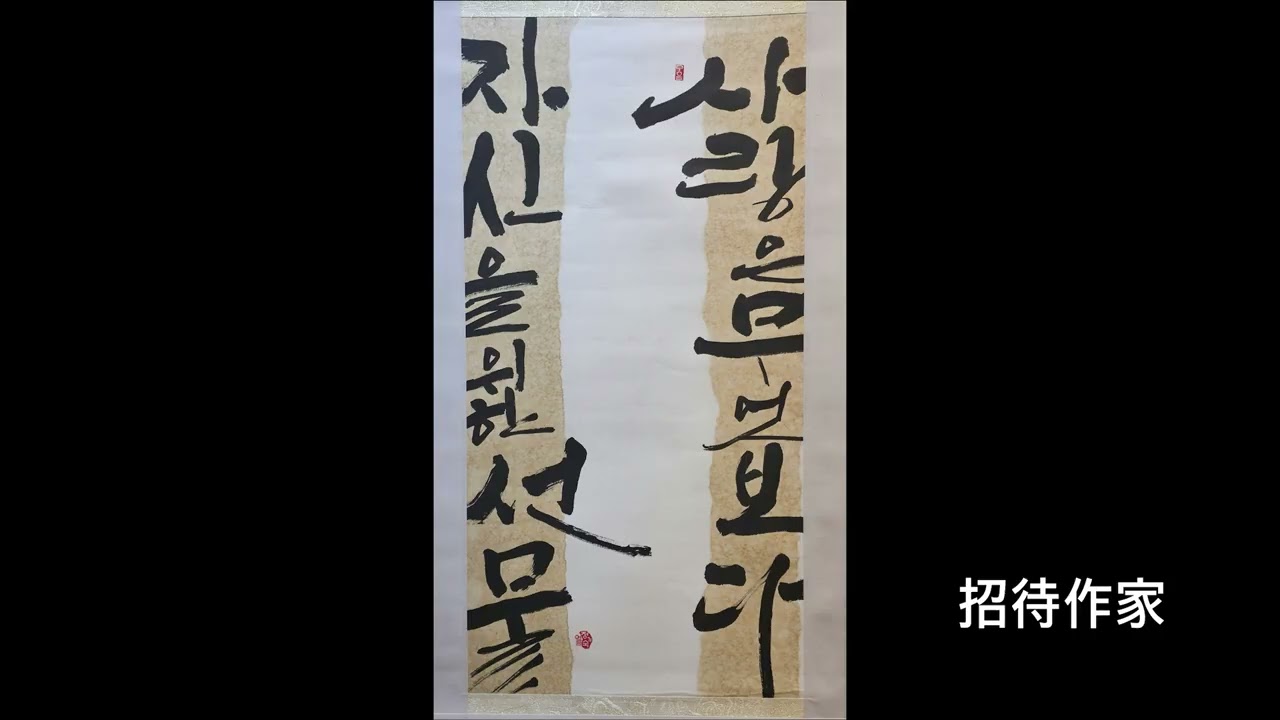 사랑은무엇보다
자신을위한선물
招待作家